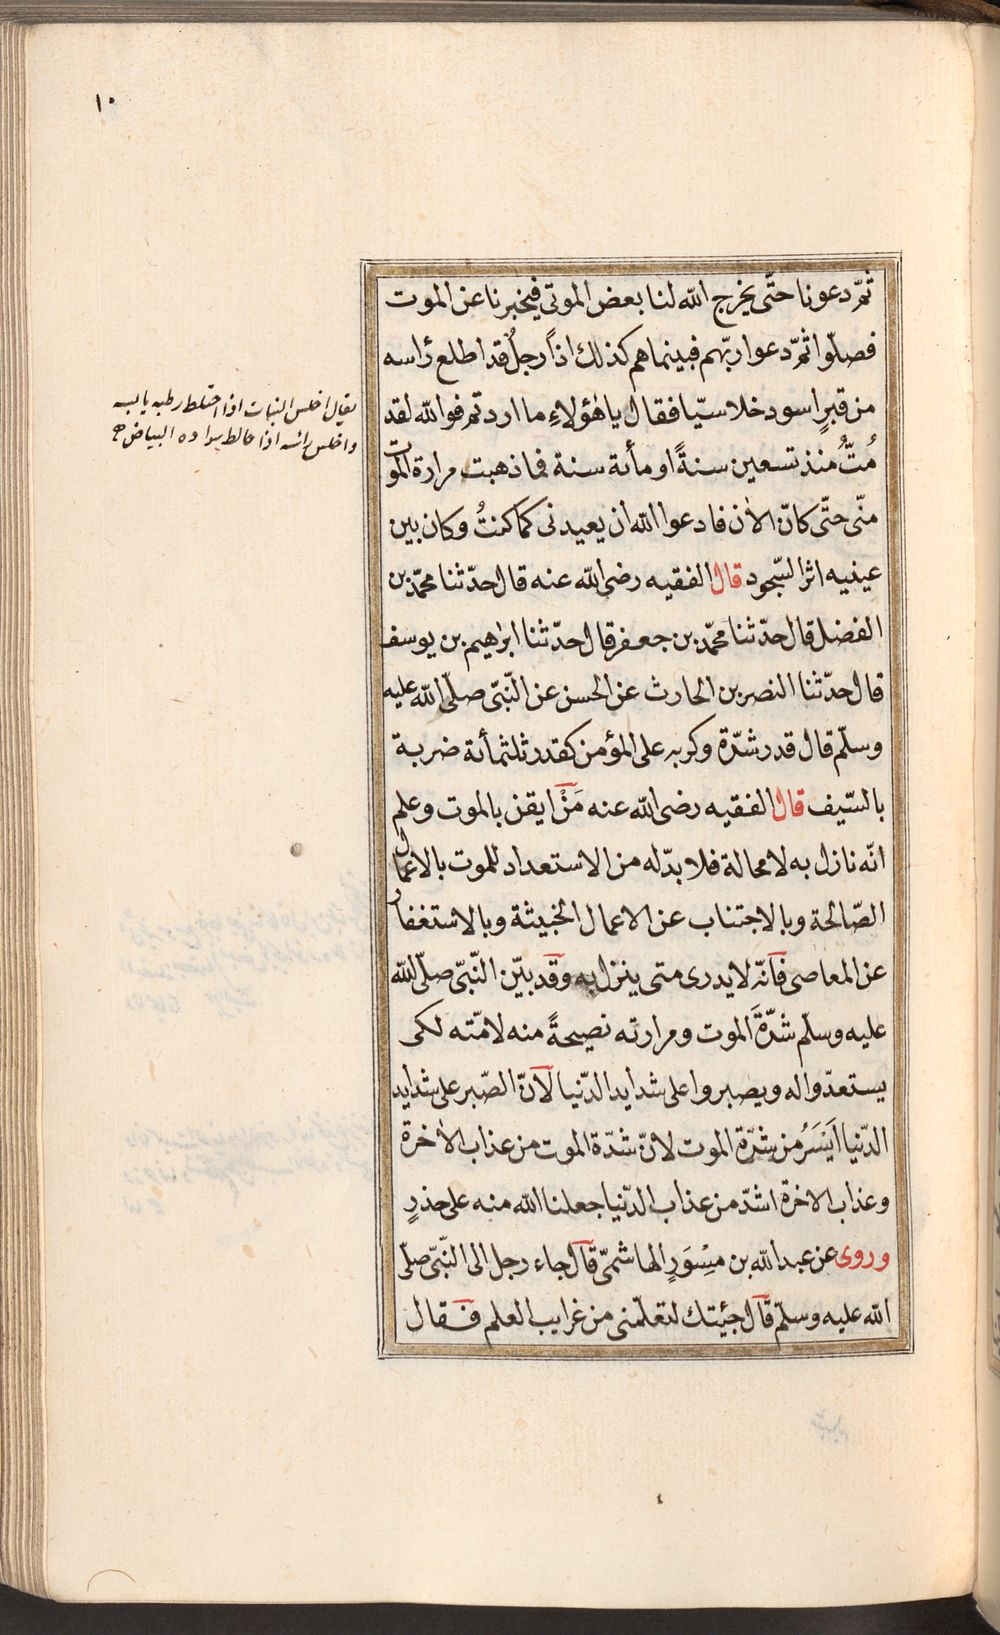 ١٠
ثمّ دعونا حتّى يخرج الله لنا بعض الموتى فيخبرنا عن الموت
فصلّوا ثمّ دعوا ربّهم فبينما هم كذلك اذاً رجلٌ قد اطلع رأسه
من قبرٍ اسود خلاسيّا فقال يا هؤلاءِ ما اردتم فوالله لقد
مُتُّ منذ تسعين سنةً او مأية سنة فما ذهبت مرارة الموت
منّى حتّى كانّ الاٰن فادعوا الله ان يعيدنى كما كنتُ وكان بين
عينيه اثر السّجود قال الفقيه رضى الله عنه قال حدّثنا محمّد بن
الفضل قال حدّثنا محمّد بن جعفر قال حدّثنا ابرٰهيم بن يوسف
قال حدّثنا النصر بن الحارث عن الحسن عن النّبىّ صلّى الله عليه
وسلّم قال قدر شدّة وكربه على المؤمن كقدر ثلثمأية ضربة
بالسّيف قال الفقيه رضى الله عنه مَنْ ايقن بالموت وعلم
انّه نازل به لا محالة فلا بدّ له من الاستعداد للموت بالاعمال
الصّالحة وبالاجتناب عن الاعمال الخبيثة وبالاستغفار
عن المعاصى فانّه لا يدرى متى ينزل به وقد بيّن النّبىّ صلّى الله
عليه وسلّم شدّةَ الموت ومرارته نصيحةً منه لامّته لكى
يستعدّوا له ويصبروا على شدايد الدّنيا لانّ الصّبر على شدايد
الدّنيا اَيْسَرُ من شدّة الموت لانّ شدّة الموت من عذاب الاٰخرة
وعذاب الاخرة اشدّ من عذاب الدّنيا جعلنا الله منه على حذرٍ
وروى عن عبد الله بن مِسْوَرٍ الهاشمىّ قال جاء رجل الى النّبىّ صلّى
الله عليه وسلّم قال جئيتك لتعلّمنى من غرايب العلم فقال
يقال اخلس النبات اذا اختلط رطبه يابسه
واخلس رأسه اذا خالط سواده البياض